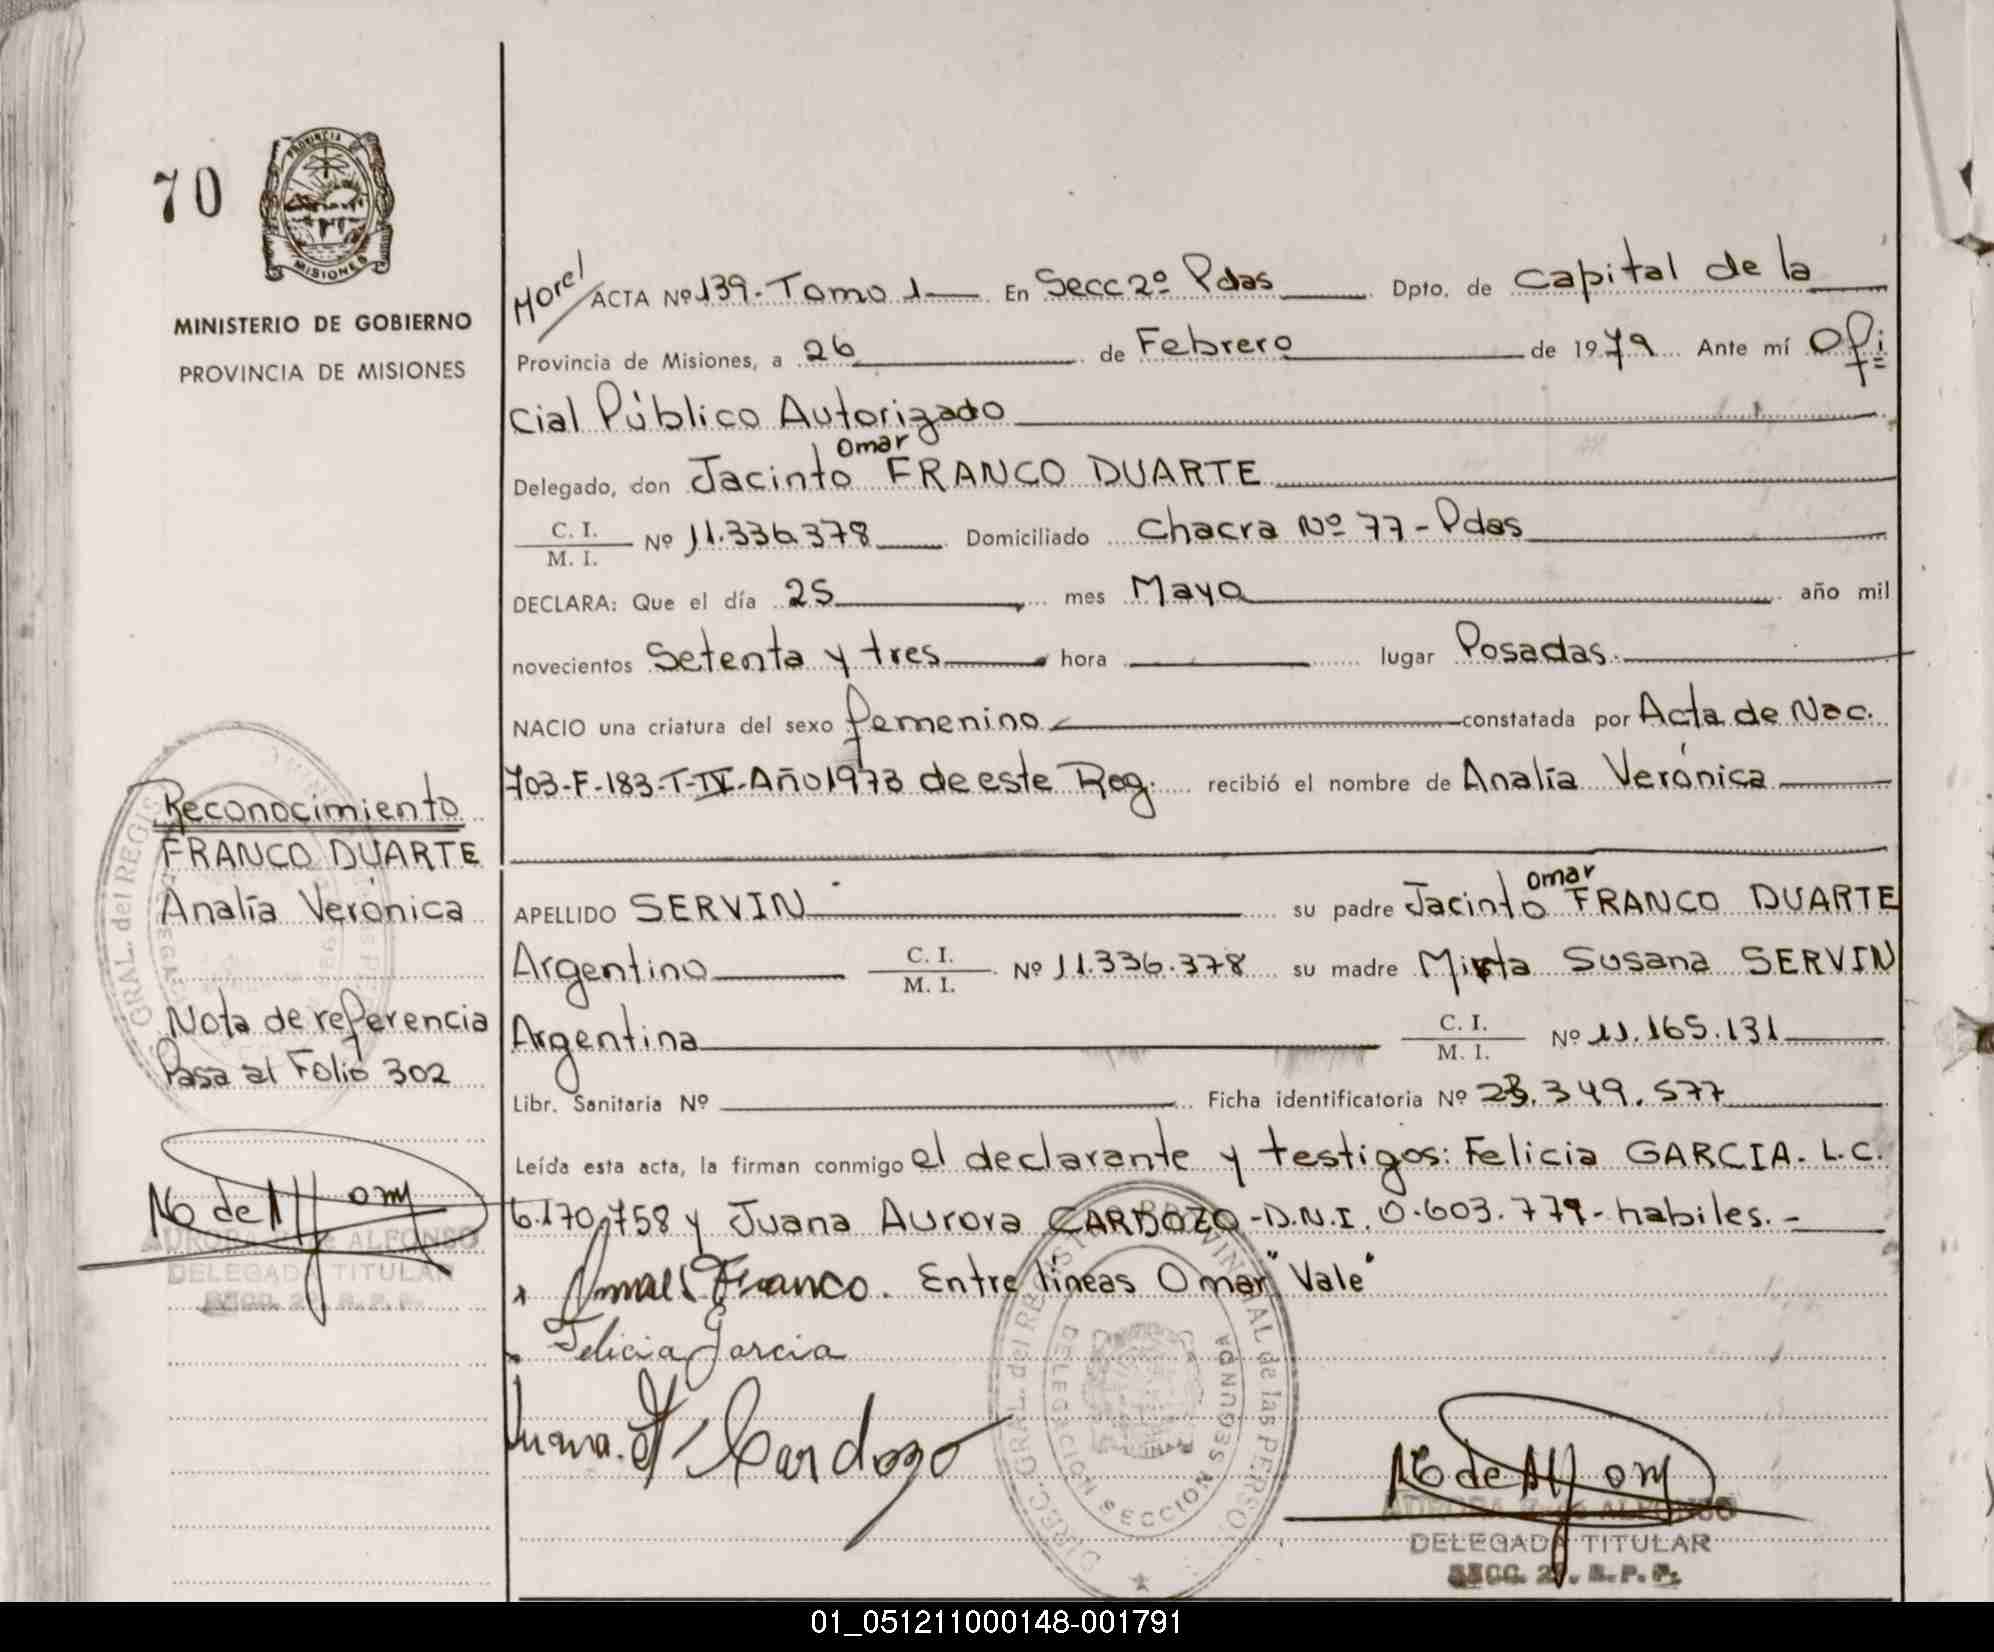 70
PROVINCIA
MISIONES
MINISTERIO DE GOBIERNO
PROVINCIA DE MISIONES
Morel
ACTA Nº 139.-Tomo 1 En Secc 2º Pdas Dpto. de Capital de la
Provincia de Misiones, a 26 de Febrero de 1979 Ante mí Ofi
cial Público Autorizado
Omar
Delegado, don Jacinto FRANCO DUARTE
C. I.
M. I. Nº 11.336.378 Domiciliado Chacra Nº 77-Pdas
DECLARA: Que el día 25 mes Mayo año mil
novecientos Setenta y tres hora lugar Posadas.
NACIO una criatura del sexo femenino constatada por Acta de Nac.
703-F-183-T-IV-Año 1973 de este Reg. recibió el nombre de Analía Verónica
APELLIDO SERVIN su padre Jacinto Omar FRANCO DUARTE
Argentino C. I. M. I. Nº 11.336.378 su madre Mirta Susana SERVIN
Argentina C. I. M. I. Nº 11.165.131
Libr. Sanitaria Nº Ficha identificatoria Nº 23.349.577
Leída esta acta, la firman conmigo el declarante y testigos: Felicia GARCIA. L.C.
6.170.758 y Juana Aurora CARDOZO-D.N.I. 0.603.779- habiles.-
Franco. Entre líneas Omar "Vale"
Felicia Garcia
Juana. A Cardozo
Reconocimiento
FRANCO DUARTE
Analía Verónica
Nota de referencia
Pasa al Folio 302
ALFONSO
DELEGADA TITULAR
SECC. 2ª. R. P. P.
DIREC. GRAL. del REGISTRO PROVINCIAL de las PERSO
DELEGACION SECCION SEGUNDA
ALFONSO
DELEGADA TITULAR
SECC. 2ª. R. P. P.
01_051211000148-001791